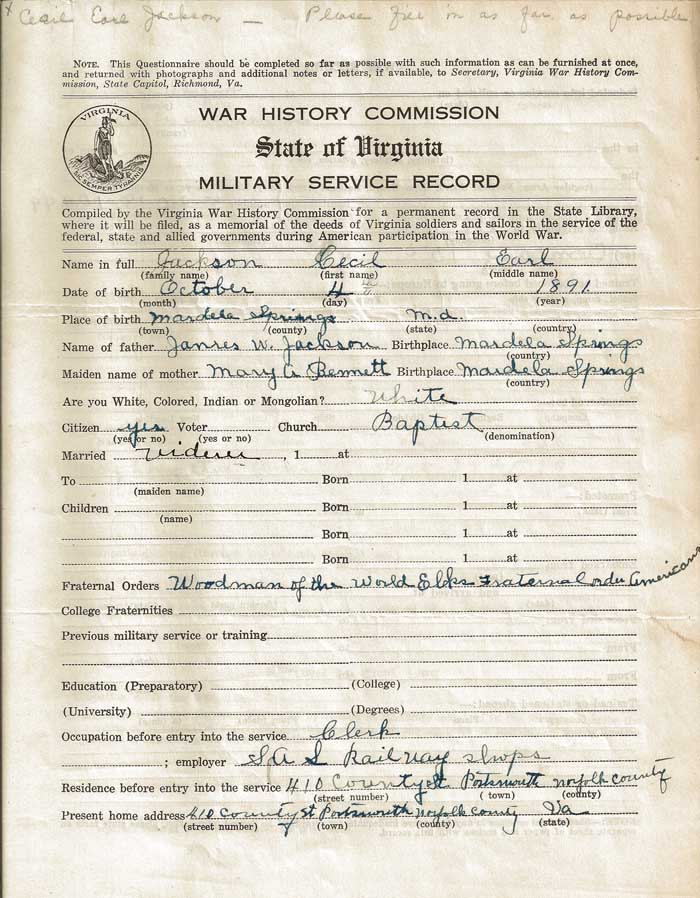 x Cecil Earl Jackson — Please fill in as far as possible
NOTE. This Questionnaire should be completed so far as possible with such information as can be furnished at once,
and returned with photographs and additional notes or letters, if available, to Secretary, Virginia War History Com-
mission, State Capitol, Richmond, Va.
VIRGINIA
SIC SEMPER TYRANNIS
WAR HISTORY COMMISSION
State of Virginia
MILITARY SERVICE RECORD
Compiled by the Virginia War History Commission for a permanent record in the State Library,
where it will be filed, as a memorial of the deeds of Virginia soldiers and sailors in the service of the
federal, state and allied governments during American participation in the World War.
Name in full Jackson Cecil Earl
(family name) (first name) (middle name)
Date of birth October 4 1891
(month) (day) (year)
Place of birth Mardela Springs M.d.
(town) (county) (state) (country)
Name of father James W. Jackson Birthplace Mardela Springs
(country)
Maiden name of mother Mary A Bennett Birthplace Mardela Springs
(country)
Are you White, Colored, Indian or Mongolian? White
Citizen yes Voter Church Baptist
(yes or no) (yes or no) (denomination)
Married , 1 at
To Born 1 at
(maiden name)
Children Born 1 at
(name)
Born 1 at
Born 1 at
Fraternal Orders Woodman of the World Elks Fraternal order Americans
College Fraternities
Previous military service or training
Education (Preparatory) (College)
(University) (Degrees)
Occupation before entry into the service Clerk
; employer S A L Railway shops
Residence before entry into the service 410 County St Portsmouth Norfolk County
(street number) (town) (county)
Present home address 410 County St Portsmouth Norfolk County Va
(street number) (town) (county) (state)